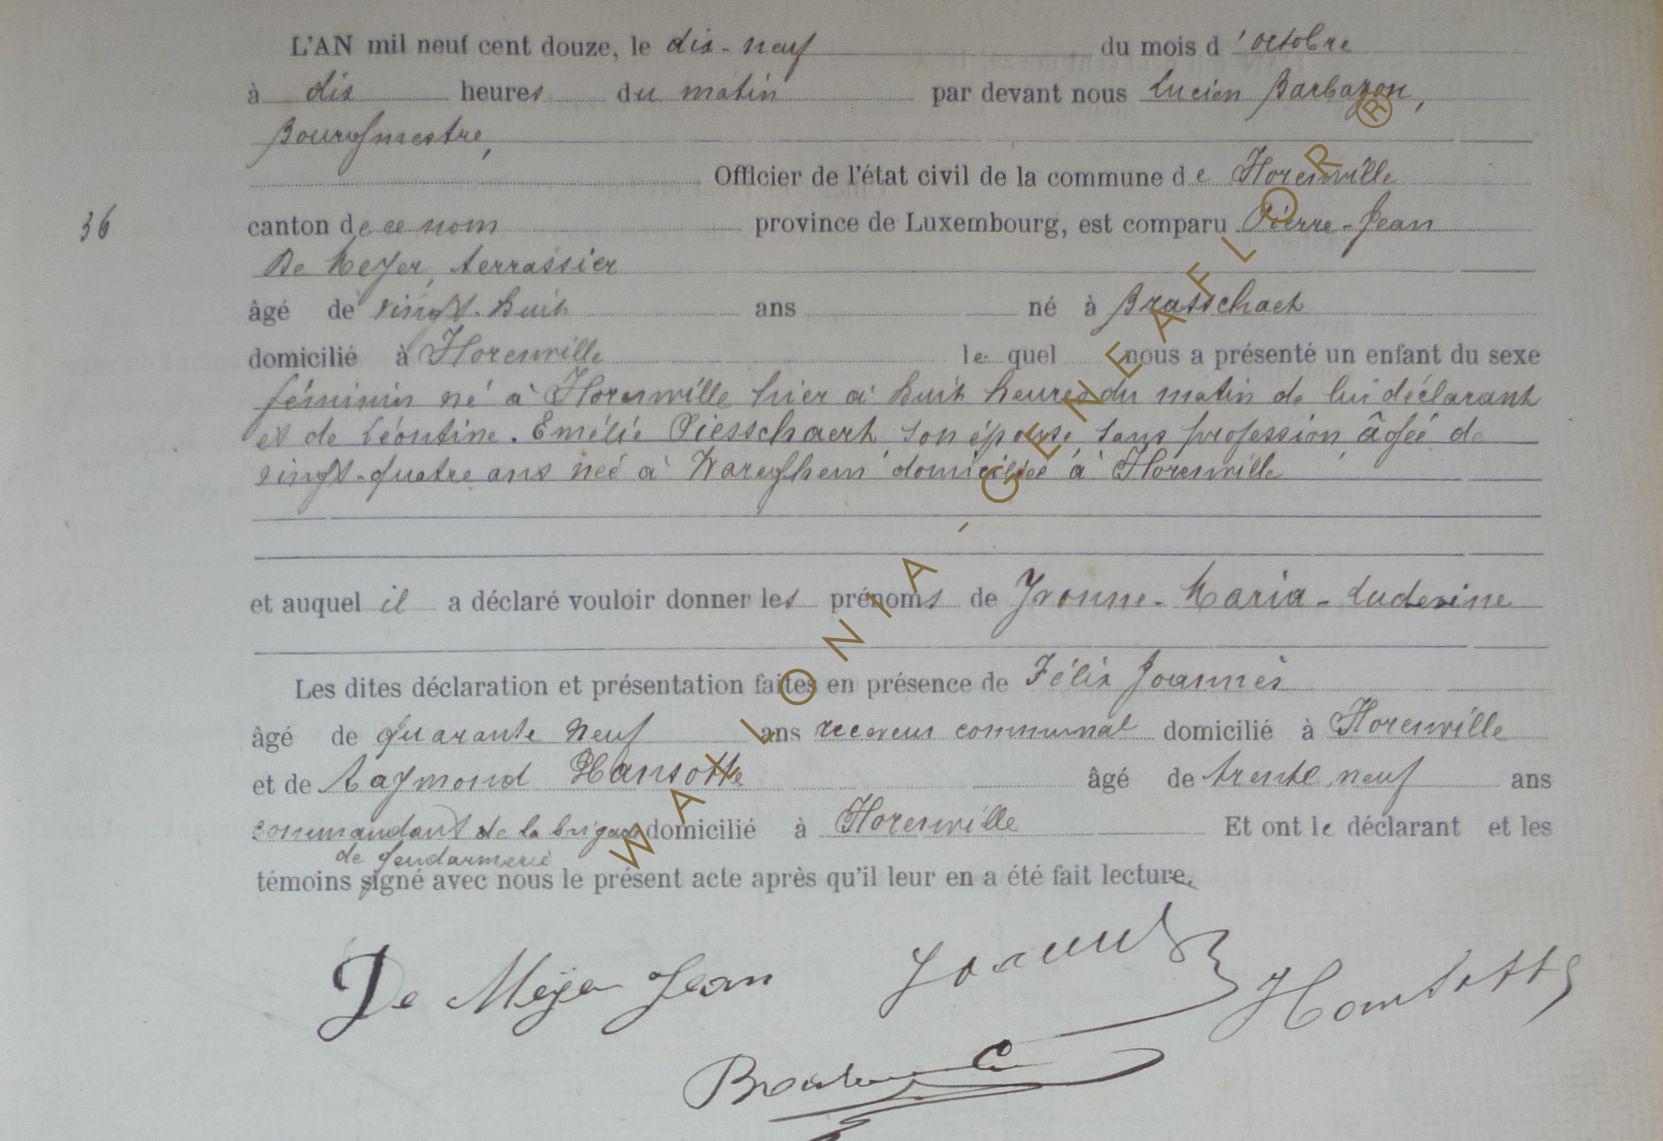 L'AN mil neuf cent douze, le dix-neuf du mois d'octobre
à dix heures du matin par devant nous Lucien Barbazon,
Bourgmestre,
Officier de l'état civil de la commune de Florenville
36
canton de ce nom province de Luxembourg, est comparu Pierre-Jean
De Meyer, terrassier
âgé de vingt-huit ans né à Brasschaet
domicilié à Florenville lequel nous a présenté un enfant du sexe
féminin né à Florenville hier à huit heures du matin de lui déclarant
et de Léontine-Emélie Piesschaert son épouse, sans profession, âgée de
vingt-quatre ans née à Wareghem domiciliée à Florenville
et auquel il a déclaré vouloir donner les prénoms de Yvonne-Maria-Ludovine
Les dites déclaration et présentation faites en présence de Félix Joannès
âgé de quarante neuf ans receveur communal domicilié à Florenville
et de Raymond Hansotte âgé de trente neuf ans
commandant de la brigade domicilié à Florenville Et ont le déclarant et les
de gendarmerie
témoins signé avec nous le présent acte après qu'il leur en a été fait lecture.
De Meÿer Jean Joannès Hansotte
WALLONIA-GENEAFLOR®